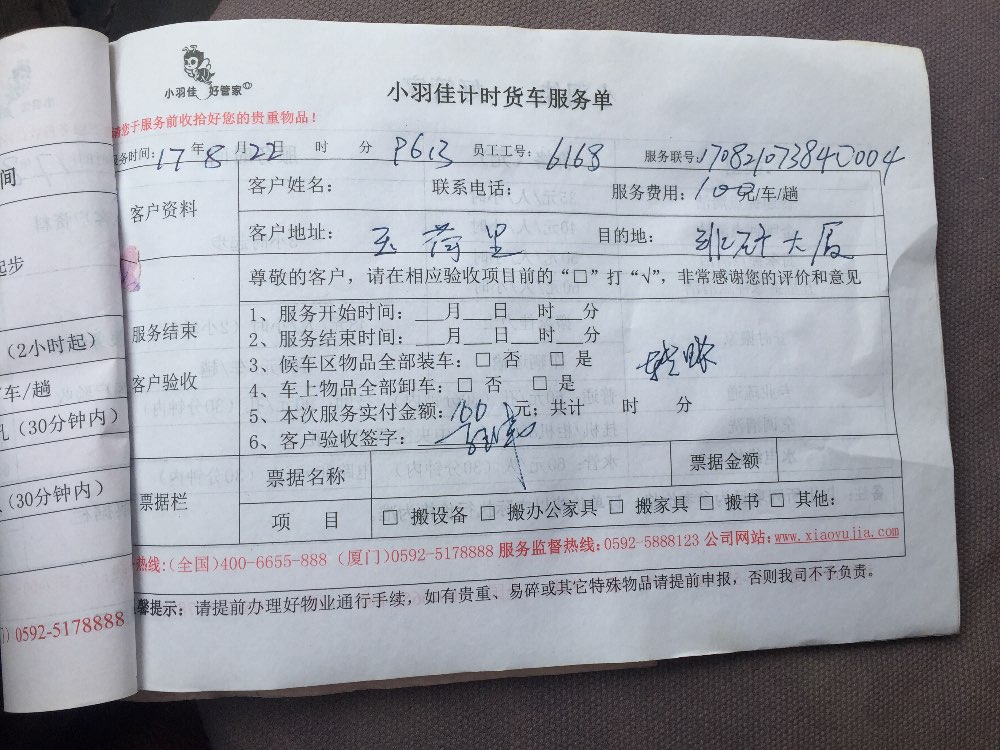 小羽佳 好管家
小羽佳计时货车服务单
您于服务前收拾好您的贵重物品！
务时间：17年8月22日 时 分 P613 员工工号：6168 服务联号：170821073840004
客户资料
客户姓名： 联系电话： 服务费用：100元/车/趟
客户地址： 玉荷里 目的地： 大厦
尊敬的客户，请在相应验收项目前的“□”打“√”，非常感谢您的评价和意见
服务结束
客户验收
1、服务开始时间：___月___日___时___分
2、服务结束时间：___月___日___时___分
3、候车区物品全部装车：□ 否 □ 是
4、车上物品全部卸车：□ 否 □ 是
5、本次服务实付金额：100元；共计 时 分
6、客户验收签字：
转账
票据栏
票据名称 票据金额
项 目 □ 搬设备 □ 搬办公家具 □ 搬家具 □ 搬书 □ 其他：
热线：(全国)400-6655-888 (厦门)0592-5178888 服务监督热线：0592-5888123 公司网站：www.xiaoyujia.com
馨提示：请提前办理好物业通行手续，如有贵重、易碎或其它特殊物品请提前申报，否则我司不予负责。
间
起步
（2小时起）
/车/趟
（30分钟内）
（30分钟内）
0592-5178888